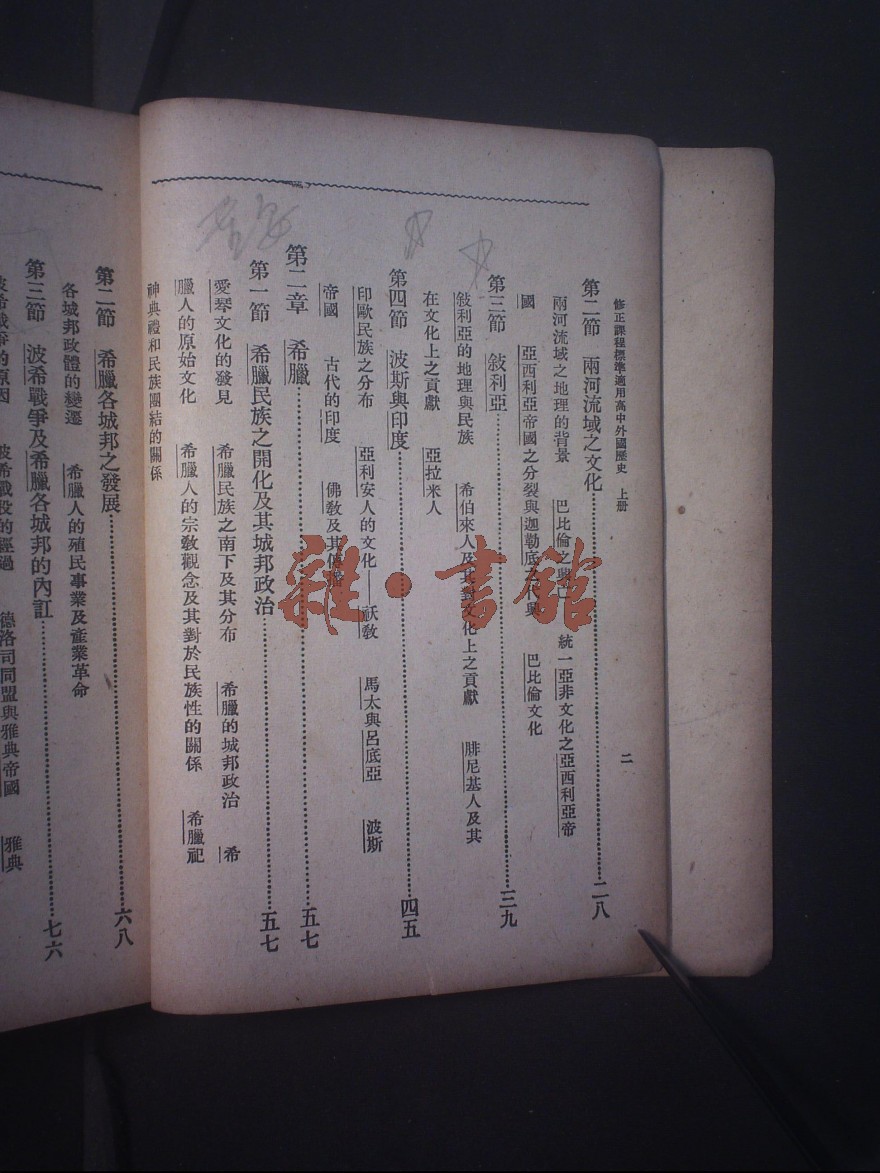 修正課程標準適用高中外國歷史　上册
二
第二節　兩河流域之文化……二八
兩河流域之地理的背景　巴比倫之興亡　統一亞非文化之亞西利亞帝
國　亞西利亞帝國之分裂與迦勒底之代興　巴比倫文化
第三節　敍利亞……三九
敍利亞的地理與民族　希伯來人及其對文化上之貢獻　腓尼基人及其
在文化上之貢獻　亞拉米人
第四節　波斯與印度……四五
印歐民族之分布　亞利安人的文化——祆敎　馬太與呂底亞　波斯
帝國　古代的印度　佛敎及其
第二章　希臘……五七
第一節　希臘民族之開化及其城邦政治……五七
愛琴文化的發見　希臘民族之南下及其分布　希臘的城邦政治　希
臘人的原始文化　希臘人的宗敎觀念及其對於民族性的關係　希臘祀
神典禮和民族團結的關係
第二節　希臘各城邦之發展……六八
各城邦政體的變遷　希臘人的殖民事業及產業革命
第三節　波希戰爭及希臘各城邦的內訌……七六
波希戰爭的原因　波希戰役的經過　德洛司同盟與雅典帝國　雅典
雜·書館